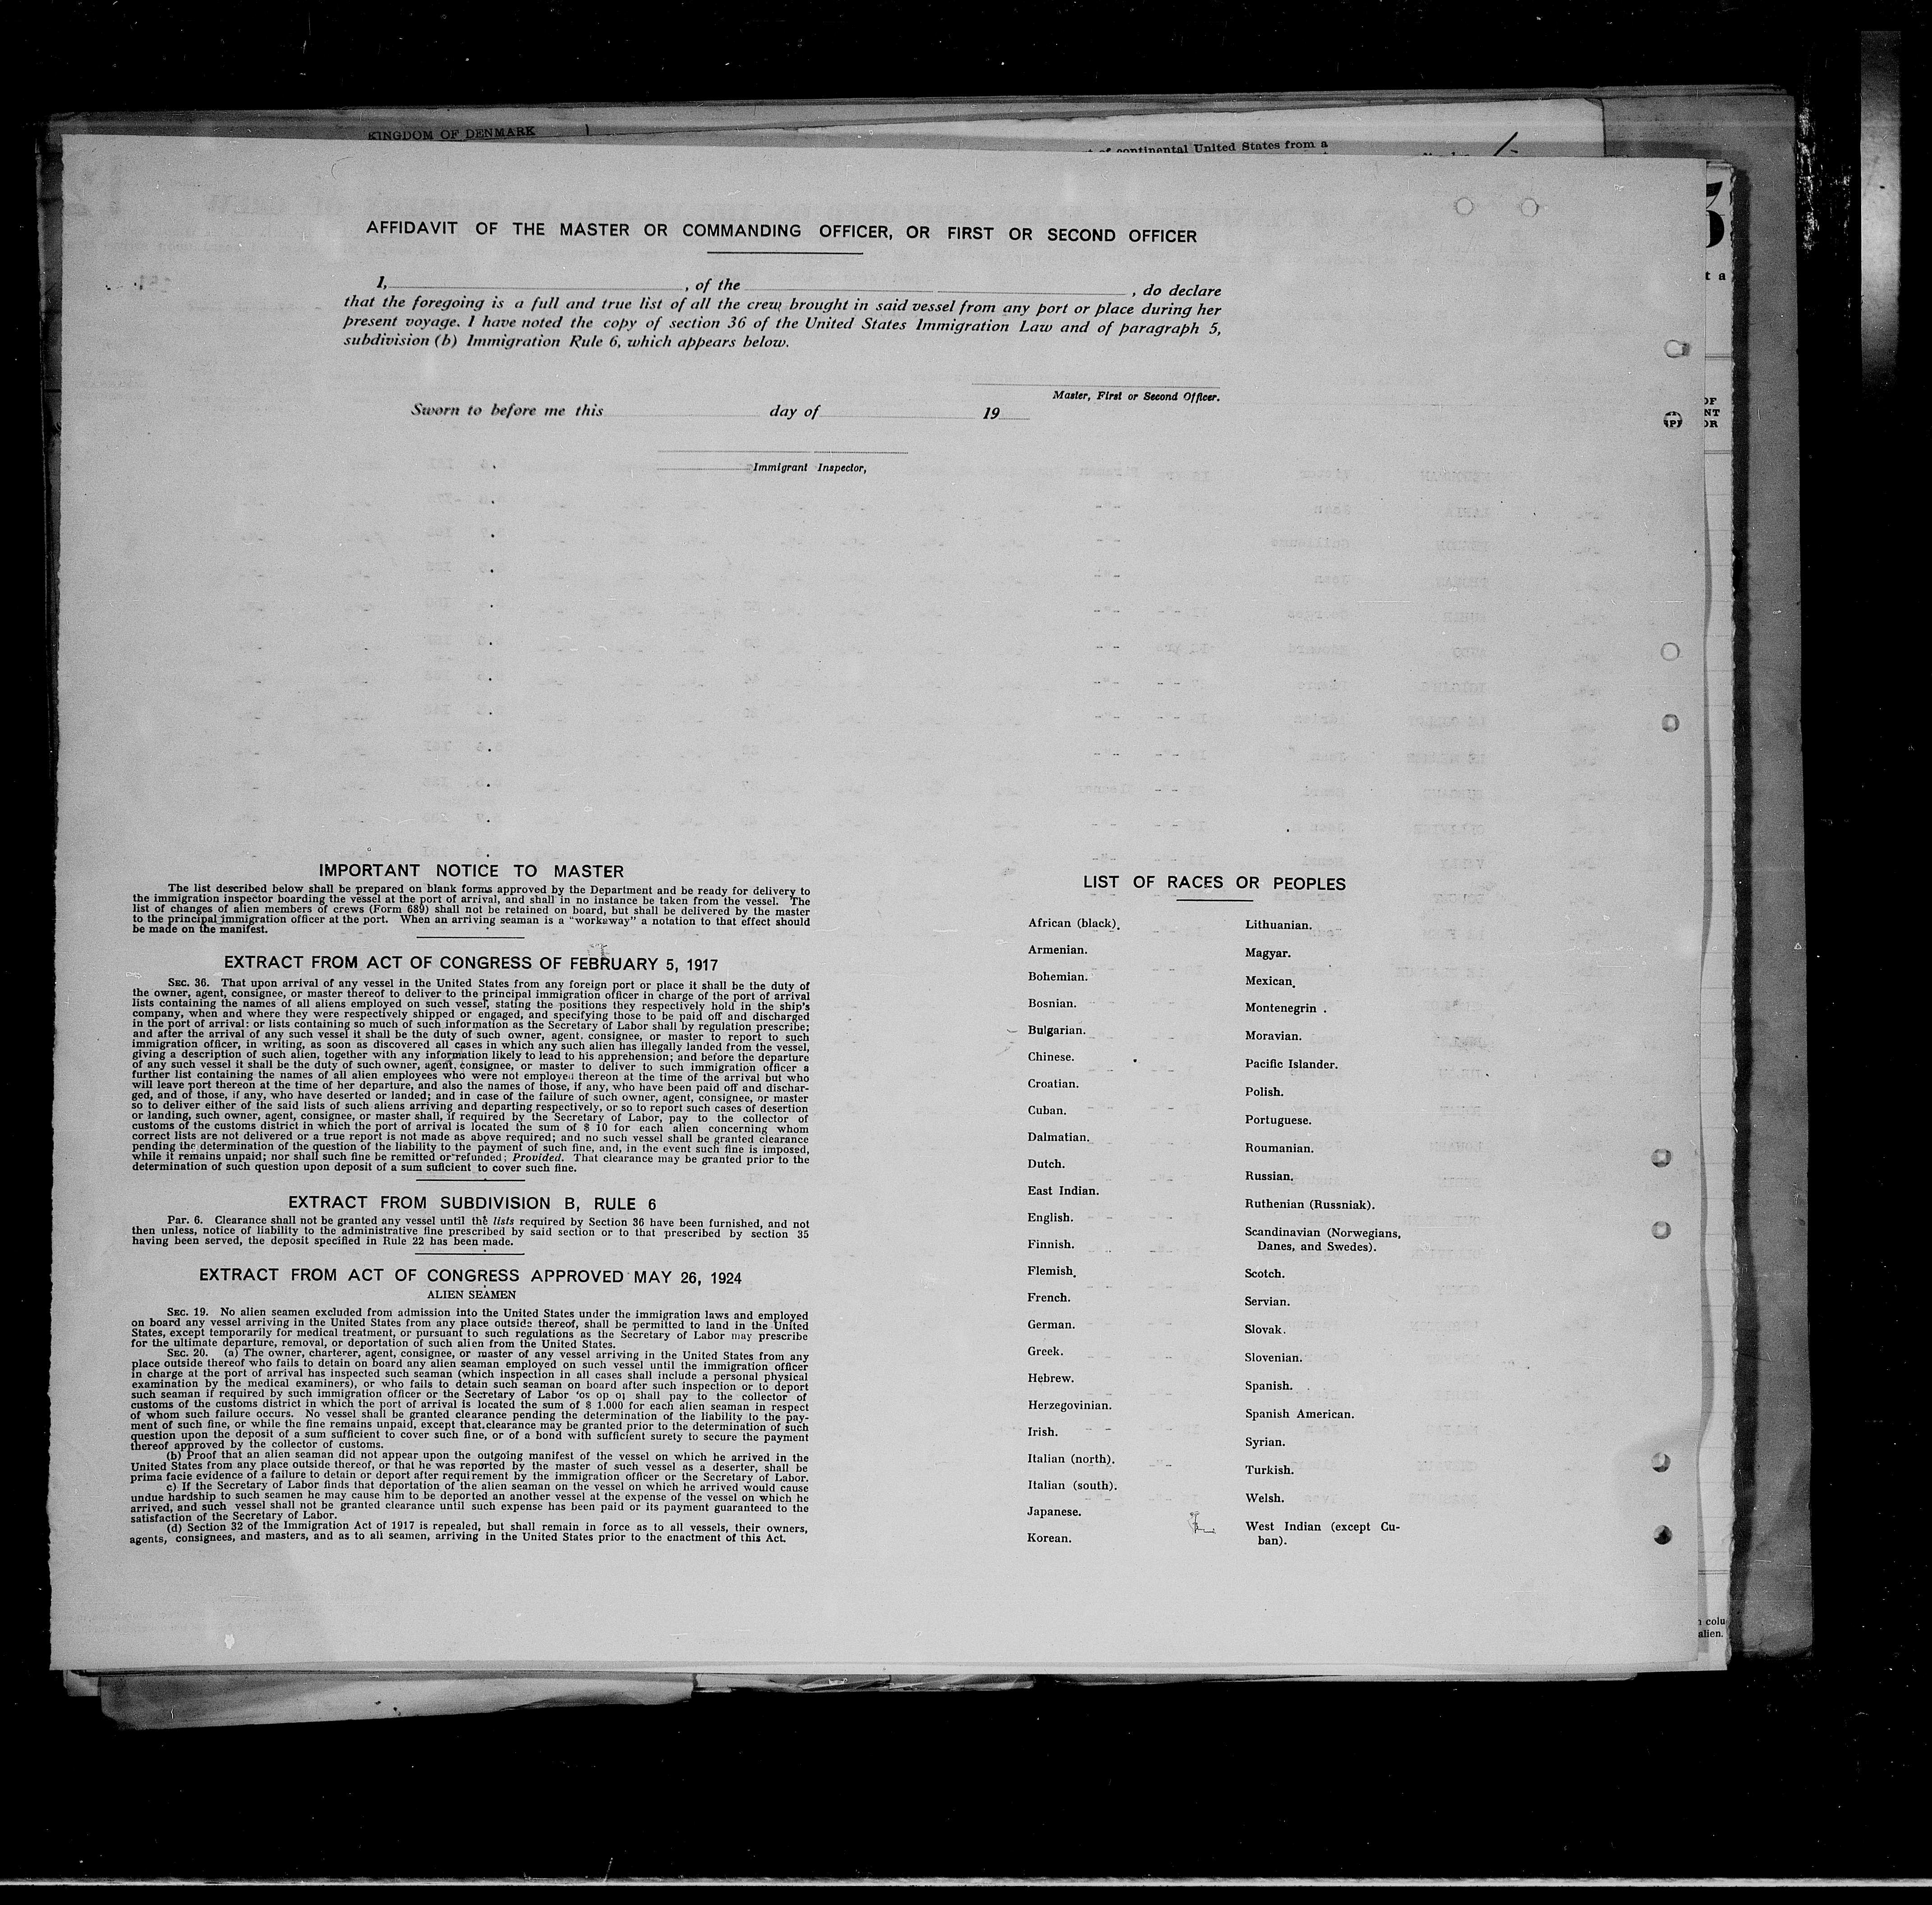 KINGDOM OF DENMARK
continental United States from a
AFFIDAVIT OF THE MASTER OR COMMANDING OFFICER, OR FIRST OR SECOND OFFICER
I, , of the , do declare
that the foregoing is a full and true list of all the crew brought in said vessel from any port or place during her
present voyage. I have noted the copy of section 36 of the United States Immigration Law and of paragraph 5,
subdivision (b) Immigration Rule 6, which appears below.
Master, First or Second Officer.
Sworn to before me this day of 19
Immigrant Inspector,
IMPORTANT NOTICE TO MASTER
The list described below shall be prepared on blank forms approved by the Department and be ready for delivery to
the immigration inspector boarding the vessel at the port of arrival, and shall in no instance be taken from the vessel. The
list of changes of alien members of crews (Form 689) shall not be retained on board, but shall be delivered by the master
to the principal immigration officer at the port. When an arriving seaman is a "workaway" a notation to that effect should
be made on the manifest.
EXTRACT FROM ACT OF CONGRESS OF FEBRUARY 5, 1917
SEC. 36. That upon arrival of any vessel in the United States from any foreign port or place it shall be the duty of
the owner, agent, consignee, or master thereof to deliver to the principal immigration officer in charge of the port of arrival
lists containing the names of all aliens employed on such vessel, stating the positions they respectively hold in the ship's
company, when and where they were respectively shipped or engaged, and specifying those to be paid off and discharged
in the port of arrival: or lists containing so much of such information as the Secretary of Labor shall by regulation prescribe;
and after the arrival of any such vessel it shall be the duty of such owner, agent, consignee, or master to report to such
immigration officer, in writing, as soon as discovered all cases in which any such alien has illegally landed from the vessel,
giving a description of such alien, together with any information likely to lead to his apprehension; and before the departure
of any such vessel it shall be the duty of such owner, agent, consignee, or master to deliver to such immigration officer a
further list containing the names of all alien employees who were not employed thereon at the time of the arrival but who
will leave port thereon at the time of her departure, and also the names of those, if any, who have been paid off and dischar-
ged, and of those, if any, who have deserted or landed; and in case of the failure of such owner, agent, consignee, or master
so to deliver either of the said lists of such aliens arriving and departing respectively, or so to report such cases of desertion
or landing, such owner, agent, consignee, or master shall, if required by the Secretary of Labor, pay to the collector of
customs of the customs district in which the port of arrival is located the sum of $ 10 for each alien concerning whom
correct lists are not delivered or a true report is not made as above required; and no such vessel shall be granted clearance
pending the determination of the question of the liability to the payment of such fine, and, in the event such fine is imposed,
while it remains unpaid; nor shall such fine be remitted or refunded; Provided. That clearance may be granted prior to the
determination of such question upon deposit of a sum suficient to cover such fine.
EXTRACT FROM SUBDIVISION B, RULE 6
Par. 6. Clearance shall not be granted any vessel until the lists required by Section 36 have been furnished, and not
then unless, notice of liability to the administrative fine prescribed by said section or to that prescribed by section 35
having been served, the deposit specified in Rule 22 has been made.
EXTRACT FROM ACT OF CONGRESS APPROVED MAY 26, 1924
ALIEN SEAMEN
SEC. 19. No alien seamen excluded from admission into the United States under the immigration laws and employed
on board any vessel arriving in the United States from any place outside thereof, shall be permitted to land in the United
States, except temporarily for medical treatment, or pursuant to such regulations as the Secretary of Labor may prescribe
for the ultimate departure, removal, or deportation of such alien from the United States.
SEC. 20. (a) The owner, charterer, agent, consignee, or master of any vessel arriving in the United States from any
place outside thereof who fails to detain on board any alien seaman employed on such vessel until the immigration officer
in charge at the port of arrival has inspected such seaman (which inspection in all cases shall include a personal physical
examination by the medical examiners), or who fails to detain such seaman on board after such inspection or to deport
such seaman if required by such immigration officer or the Secretary of Labor 'os op oj shall pay to the collector of
customs of the customs district in which the port of arrival is located the sum of $ 1.000 for each alien seaman in respect
of whom such failure occurs. No vessel shall be granted clearance pending the determination of the liability to the pay-
ment of such fine, or while the fine remains unpaid, except that clearance may be granted prior to the determination of such
question upon the deposit of a sum sufficient to cover such fine, or of a bond with sufficient surety to secure the payment
thereof approved by the collector of customs.
(b) Proof that an alien seaman did not appear upon the outgoing manifest of the vessel on which he arrived in the
United States from any place outside thereof, or that he was reported by the master of such vessel as a deserter, shall be
prima facie evidence of a failure to detain or deport after requirement by the immigration officer or the Secretary of Labor.
c) If the Secretary of Labor finds that deportation of the alien seaman on the vessel on which he arrived would cause
undue hardship to such seamen he may cause him to be deported an another vessel at the expense of the vessel on which he
arrived, and such vessel shall not be granted clearance until such expense has been paid or its payment guaranteed to the
satisfaction of the Secretary of Labor.
(d) Section 32 of the Immigration Act of 1917 is repealed, but shall remain in force as to all vessels, their owners,
agents, consignees, and masters, and as to all seamen, arriving in the United States prior to the enactment of this Act.
LIST OF RACES OR PEOPLES
African (black).
Armenian.
Bohemian.
Bosnian.
Bulgarian.
Chinese.
Croatian.
Cuban.
Dalmatian.
Dutch.
East Indian.
English.
Finnish.
Flemish.
French.
German.
Greek.
Hebrew.
Herzegovinian.
Irish.
Italian (north).
Italian (south).
Japanese.
Korean.
Lithuanian.
Magyar.
Mexican.
Montenegrin .
Moravian.
Pacific Islander.
Polish.
Portuguese.
Roumanian.
Russian.
Ruthenian (Russniak).
Scandinavian (Norwegians,
Danes, and Swedes).
Scotch.
Servian.
Slovak.
Slovenian.
Spanish.
Spanish American.
Syrian.
Turkish.
Welsh.
West Indian (except Cu-
ban).
colu
alien.